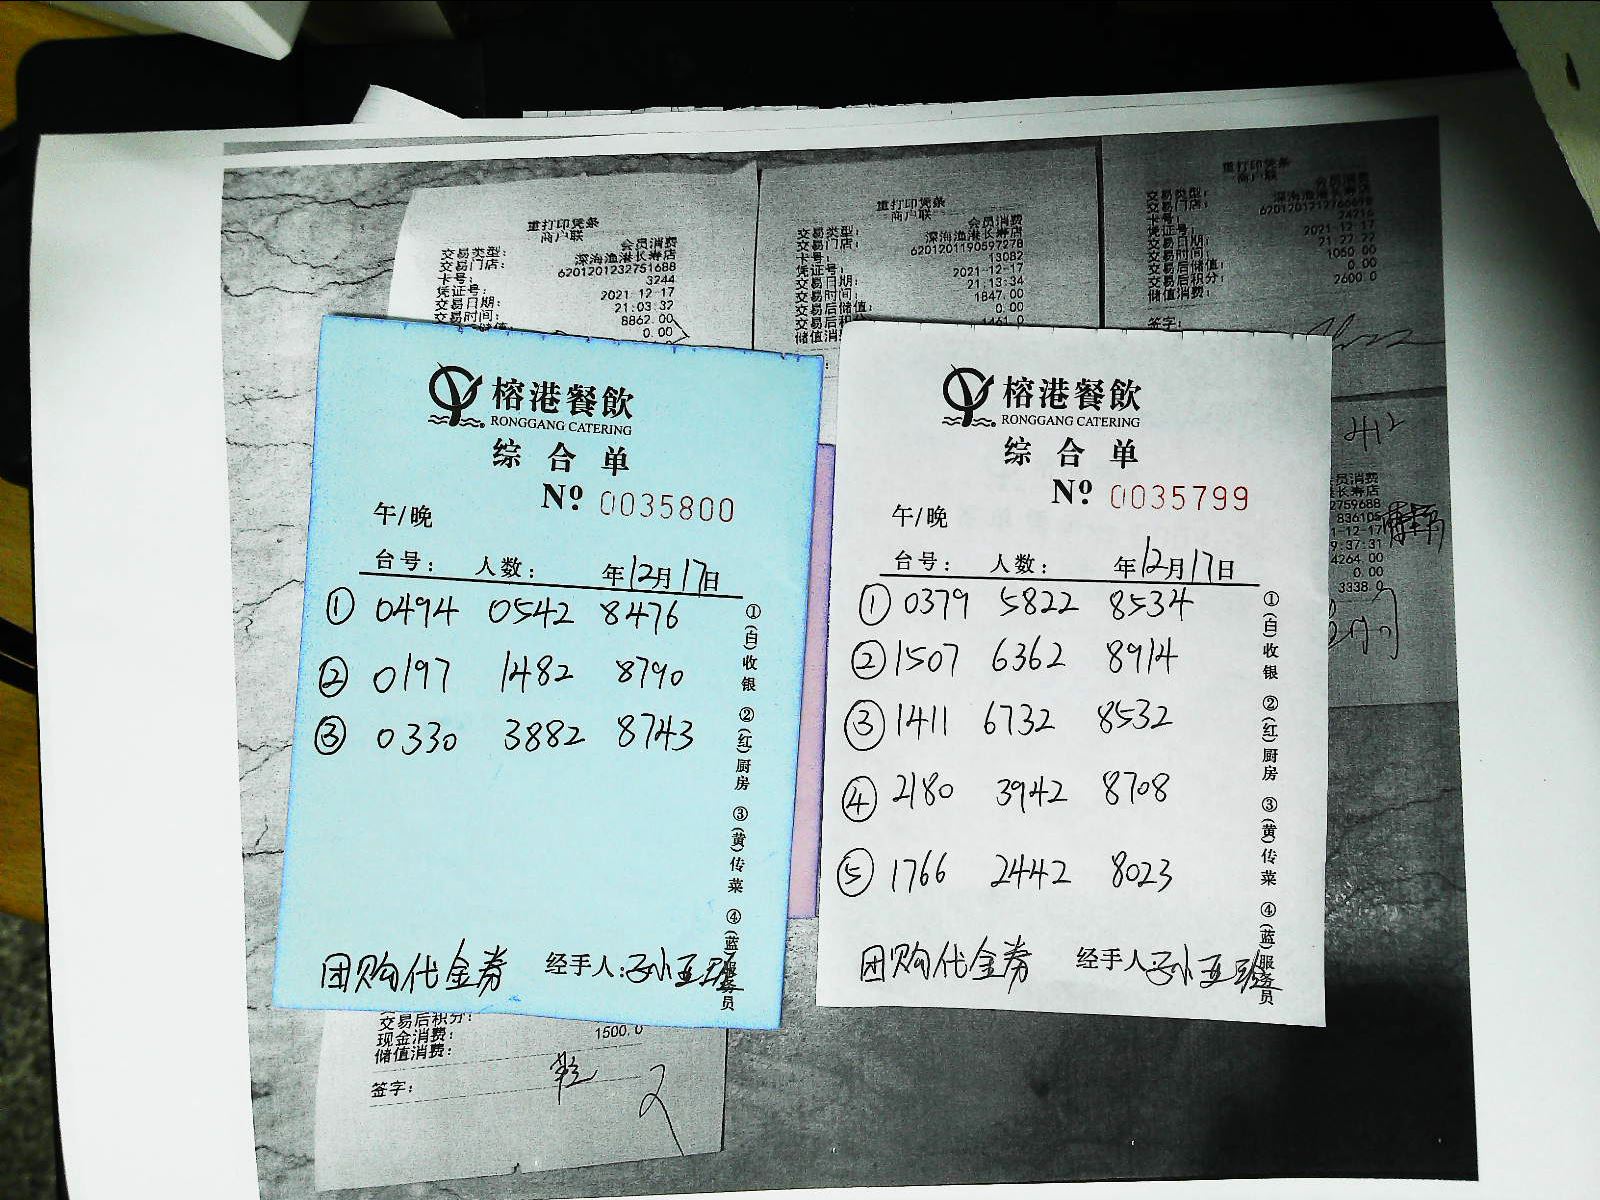 重打印凭条
商户联
交易类型： 会员消费
交易门店： 深海渔港长寿店
卡号： 6201201232751688
凭证号： 3244
交易日期： 2021-12-17
交易时间： 21:03:32
8862.00
0.00
重打印凭条
商户联
交易类型： 会员消费
交易门店： 深海渔港长寿店
卡号： 6201201190597278
凭证号： 13082
交易日期： 2021-12-17
交易时间： 21:13:34
交易后储值： 1847.00
交易后积分 0.00
储值消
重打印凭条
商户联
交易类型： 会员消费
交易门店： 深海渔港长寿店
卡号：
凭证号： 24216
交易日期： 2021-12-17
交易时间： 21:22:22
交易后储值： 1050.00
交易后积分： 0.00
储值消费： 2600.0
签字：
榕港餐飲
RONGGANG CATERING
综合单
Nº 0035800
午/晚
台号： 人数： 年12月17日
① 0494 0542 8476
② 0197 1482 8790
③ 0330 3882 8743
团购代金券 经手人：孙亚
①(白)收银 ②(红)厨房 ③(黄)传菜 ④(蓝)服务员
榕港餐飲
RONGGANG CATERING
综合单
Nº 0035799
午/晚
台号： 人数： 年12月17日
① 0379 5822 8534
② 1507 6362 8914
③ 1411 6732 8532
④ 2180 3942 8708
⑤ 1766 2442 8023
团购代金券 经手人：孙亚
①(白)收银 ②(红)厨房 ③(黄)传菜 ④(蓝)服务员
412
员消费
长寿店
2759688
836105
1-12-17
9:37:31
4264.00
0.00
3338.0
交易后积分：
现金消费： 1500.0
储值消费：
签字：